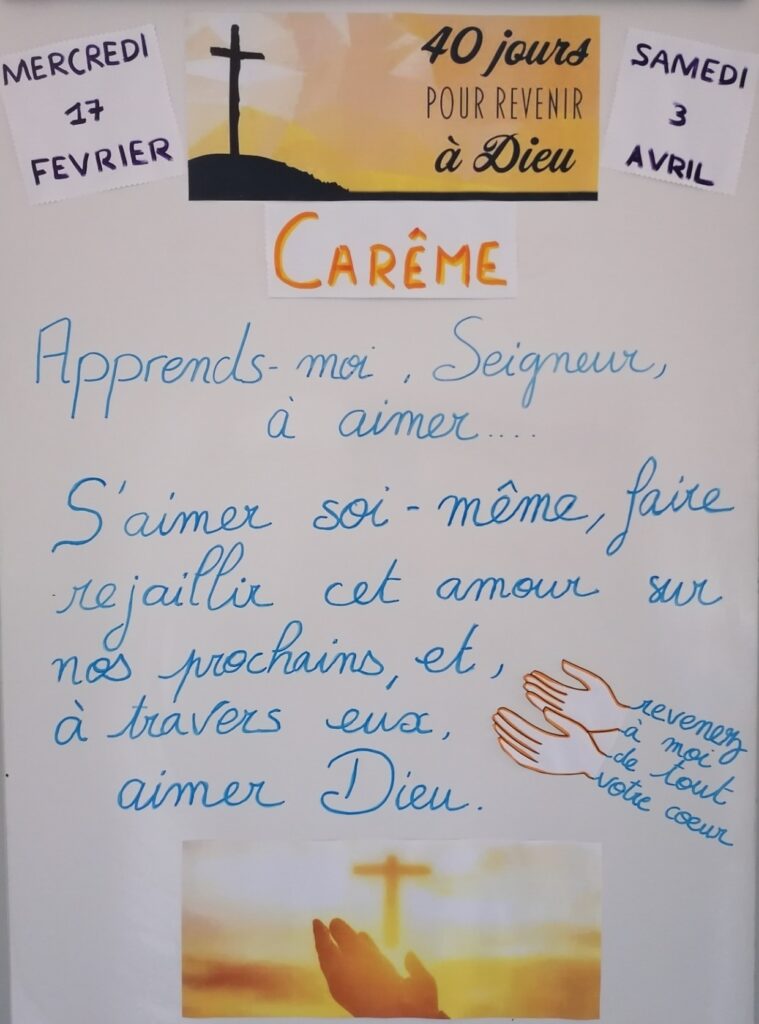 MERCREDI
17
FEVRIER
40 jours
POUR REVENIR
à Dieu
SAMEDI
3
AVRIL
CARÊME
Apprends-moi, Seigneur,
à aimer....
S'aimer soi-même, faire
rejaillir cet amour sur
nos prochains, et,
à travers eux,
aimer Dieu.
revenez
à moi
de tout
votre coeur